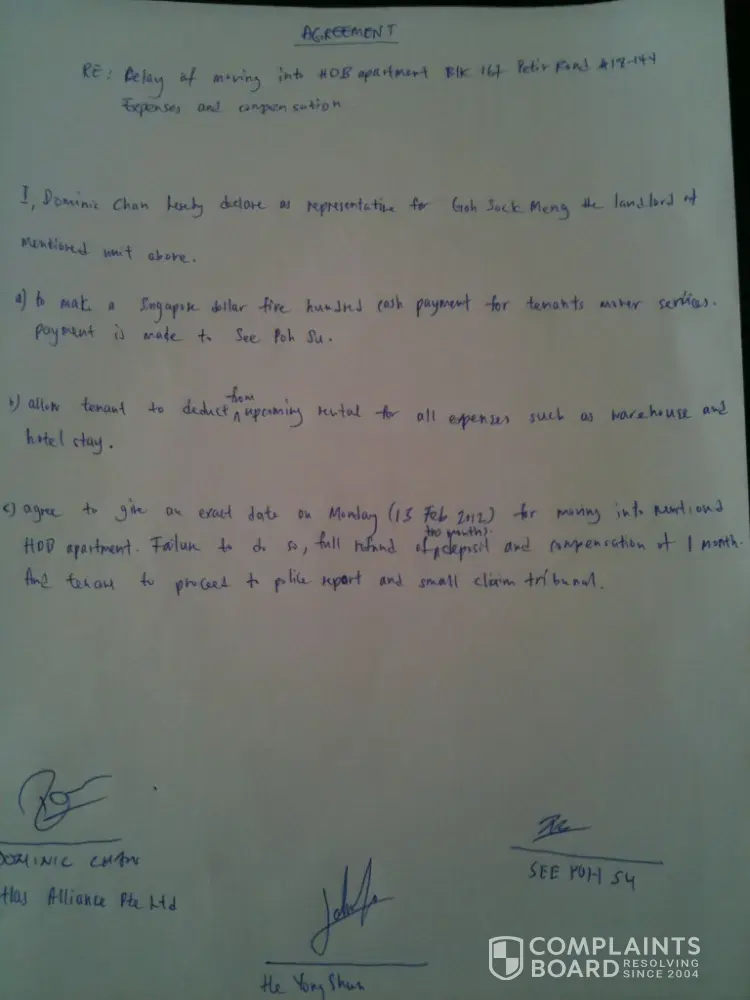 AGREEMENT
RE: Delay of moving into HDB apartment Blk 167 Petir Road #18-144
Expenses and compensation
I, Dominic Chan hereby declare as representative for Goh Sock Meng the landlord of
mentioned unit above.
a) to make a Singapore dollar five hundred cash payment for tenants mover services.
payment is made to See Poh Su.
b) allow tenant to deduct from upcoming rental for all expenses such as warehouse and
hotel stay.
c) agree to give an exact date on Monday (13 Feb 2012) for moving into mentioned
HDB apartment. Failure to do so, full refund of (two months) deposit and compensation of 1 month.
And tenant to proceed to police report and small claim tribunal.
DOMINIC CHAN
Atlas Alliance Pte Ltd
SEE POH SU
He Yong Shun
COMPLAINTS
BOARD RESOLVING
SINCE 2004